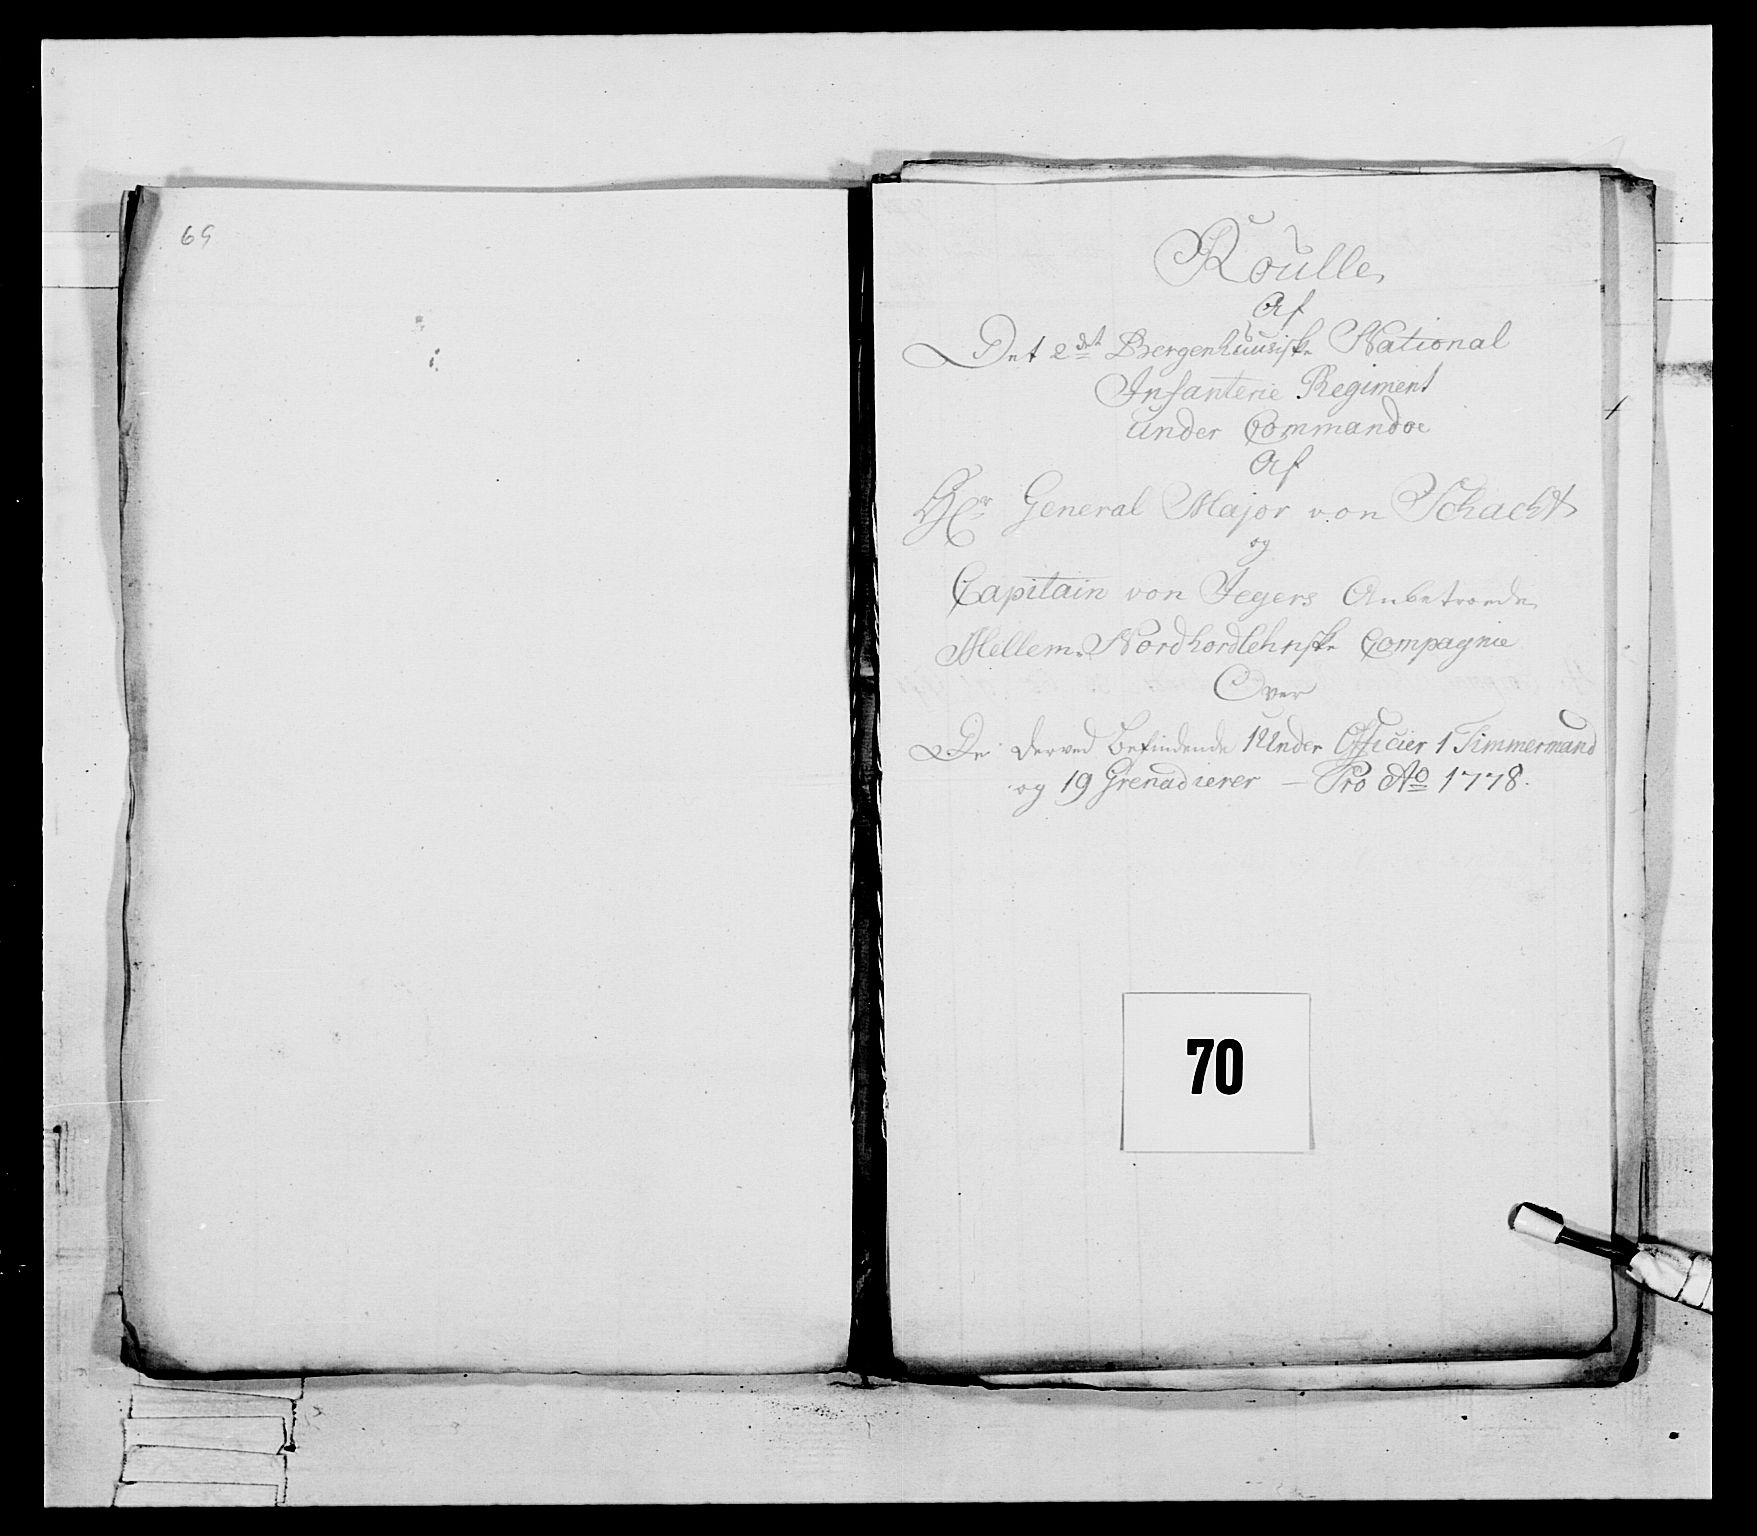 69
Roulle
Af
Det 2det Bergenhuusiske National
Infanterie Regiment
under Commandoe
Af
Hr General Major von Schacht
og
Capitain von Jegers Anbetroede
Mellem Nordhordlehnske Compagnie
Over
De derved befindende 1 Under Officier 1 Timmermand
og 19 Grenadierer – Pro Ao 1778.
70